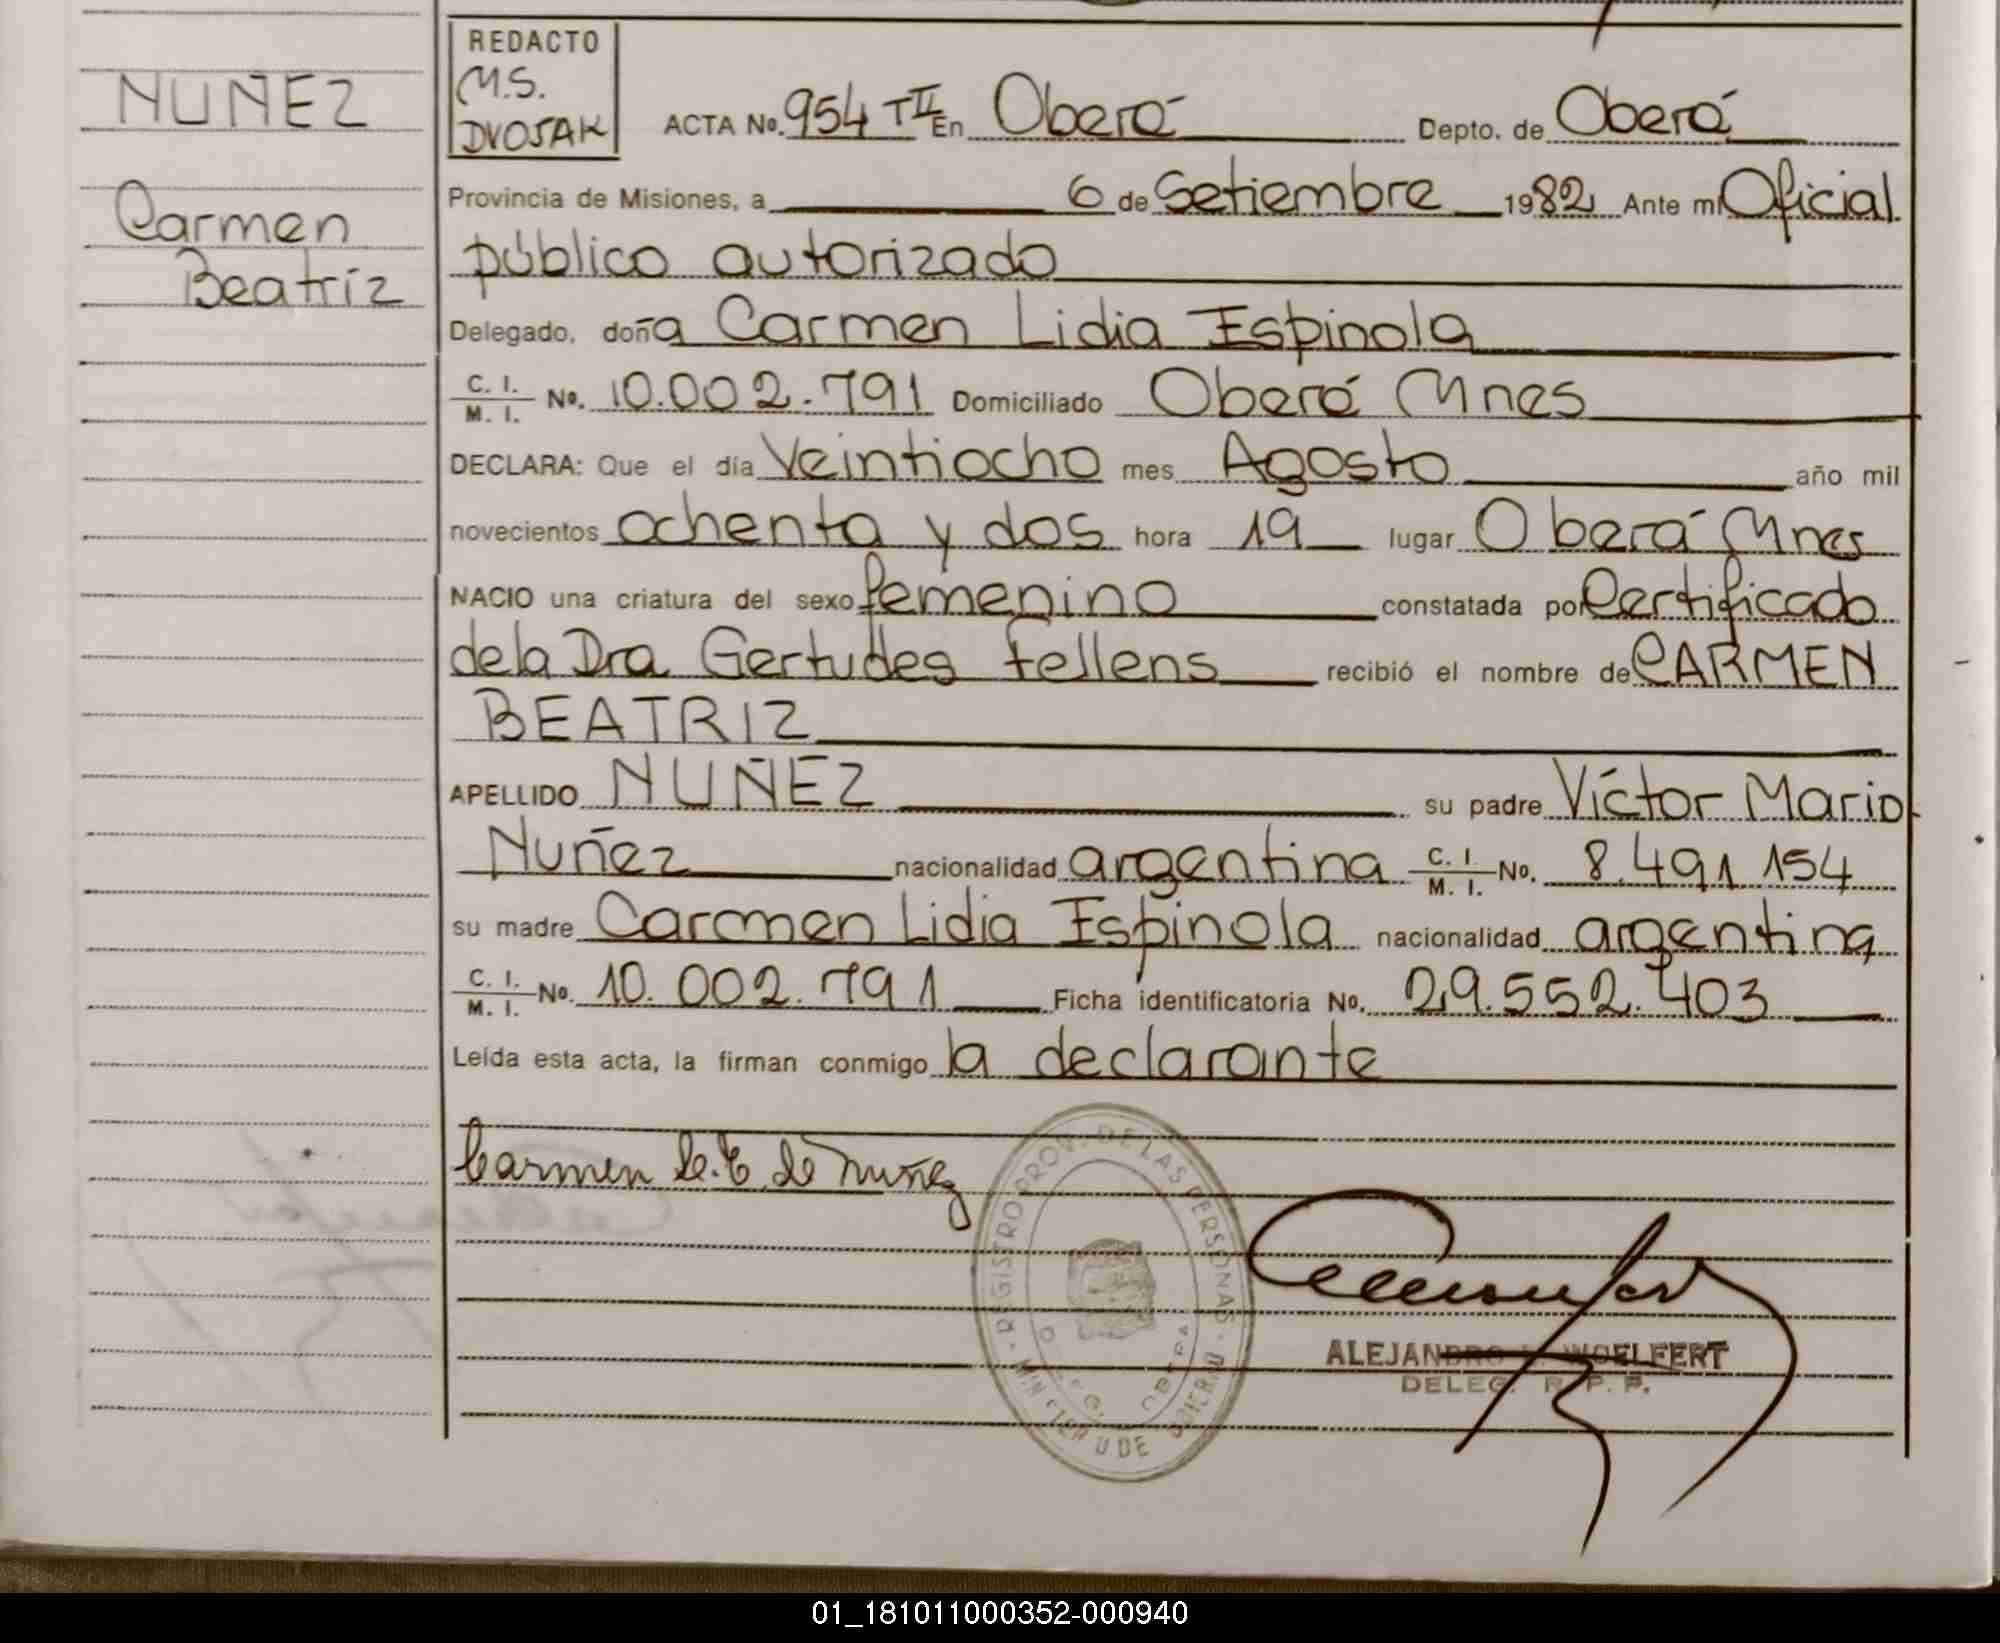 NUÑEZ
Carmen
Beatríz
REDACTO
M.S.
DVOSAK
ACTA No. 954 TII En Oberá Depto. de Oberá
Provincia de Misiones, a 6 de Setiembre 1982 Ante mi Oficial
público autorizado
Delegado, doña Carmen Lidia Espinola
C. I. / M. I. No. 10.002.791 Domiciliado Oberá Mnes
DECLARA: Que el día Veintiocho mes Agosto año mil
novecientos ochenta y dos hora 19 lugar Oberá Mnes
NACIO una criatura del sexo femenino constatada por Certificado
de la Dra Gertudes Fellens recibió el nombre de CARMEN
BEATRIZ
APELLIDO NUÑEZ su padre Víctor Mario
Nuñez nacionalidad argentina C. I. / M. I. No. 8.491.154
su madre Carmen Lidia Espinola nacionalidad argentina
C. I. / M. I. No. 10.002.791 Ficha identificatoria No. 29.552.403
Leída esta acta, la firman conmigo la declarante
Carmen L. E. de Nuñez
REGISTRO PROV. DE LAS PERSONAS
ALEJANDRO WOELFERT
DELEG. R. P. P.
01_181011000352-000940